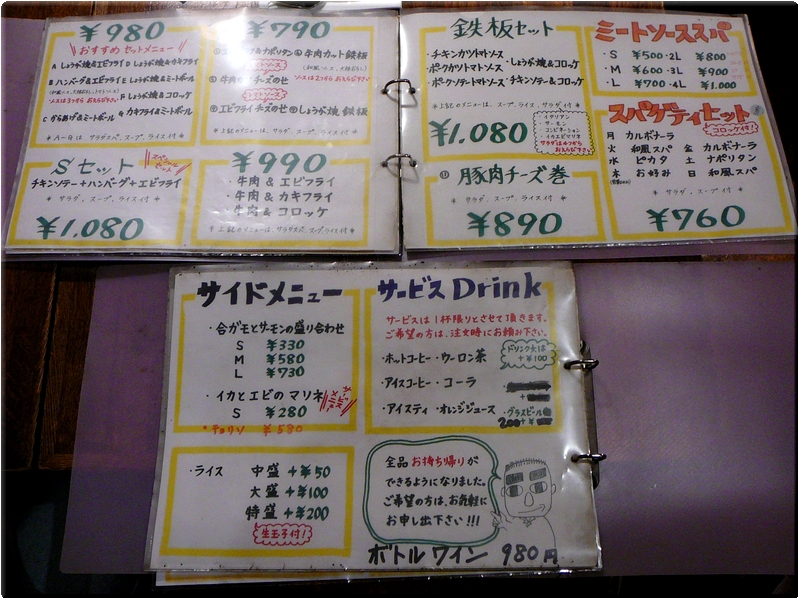 ¥980
おすすめセットメニュー
A しょうが焼&エビフライ
E しょうが焼&カキフライ
B ハンバーグ&エビフライ
D しょうが焼&ミートボール
F しょうが焼&コロッケ
C からあげ&ミートボール
G カキフライ&ミートボール
※ A〜Gは、サラダ、スープ、ライス付 ※
Sセット
チキンソテー+ハンバーグ+エビフライ
* サラダ、スープ、ライス付 *
¥1.080
¥790
牛肉カット鉄板
エビフライチーズのせ
しょうが焼 鉄板
※上記のメニューは、スープ、ライス付 ※
¥990
・牛肉&エビフライ
・牛肉&カキフライ
・牛肉&コロッケ
*上記のメニューは、サラダ、スープ、ライス付*
鉄板セット
・チキンカツトマトソース
・ポークカツトマトソース
・しょうが焼&コロッケ
・ポークソテートマトソース
・チキンソテー&コロッケ
※上記のメニューは、スープ、ライス、サラダ付※
¥1.080
・イタリアン
・サーモン
・コンビネーション
・イカエビマリネ
サラダは4つから
お えらび下さい
豚肉チーズ巻
* サラダ、スープ、ライス付 *
¥890
ミートソーススパ
・S ¥500
・2L ¥800
・M ¥600
・3L ¥900
・L ¥700
・4L ¥1.000
スパゲティセット
コロッケ付!
月 カルボナーラ
火 和風スパ
金 カルボナーラ
水 ピカタ
土 ナポリタン
木 お好み
日 和風スパ
* サラダ、スープ、ライス付 *
¥760
サイドメニュー
・合ガモとサーモンの盛り合わせ
S ¥330
M ¥580
L ¥730
・イカとエビのマリネ
S ¥280
・チョリソ ¥580
・ライス 中盛 +¥50
大盛 +¥100
特盛 +¥200
生玉子付!
サービス Drink
サービスは1杯限りとさせて頂きます。
ご希望の方は、注文時にお頼み下さい。
・ホットコーヒー ・ウーロン茶
ドリンク大は
+¥100
・アイスコーヒー ・コーラ
・アイスティ ・オレンジジュース
・グラスビール
200+¥
全品お持ち帰りが
できるようになりました。
ご希望の方は、お気軽に
お申し出下さい!!!
ボトルワイン 980円